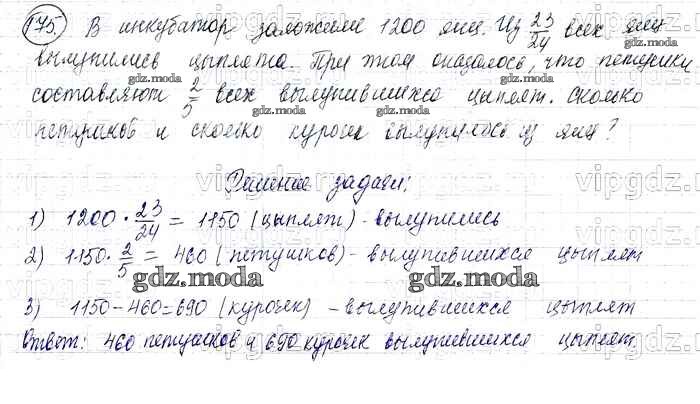 175. В инкубатор заложили 1200 яиц. Из 23/24 всех яиц
вылупились цыплята. При этом оказалось, что петушки
gdz.moda gdz.moda
составляют 2/5 всех вылупившихся цыплят. Сколько
gdz.moda gdz.moda
петушков и сколько курочек вылупилось из яиц?
Решение задачи:
1) 1200 · 23/24 = 1150 (цыплят) - вылупились
2) 1150 · 2/5 = 460 (петушков) - вылупившихся цыплят
gdz.moda gdz.moda
3) 1150 - 460 = 690 (курочек) - вылупившихся цыплят
Ответ: 460 петушков и 690 курочек вылупившихся цыплят.